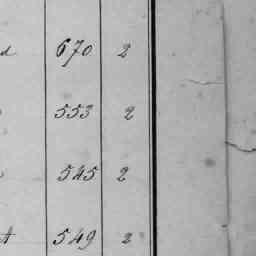 d 670 2
553 2
545 2
t 549 2